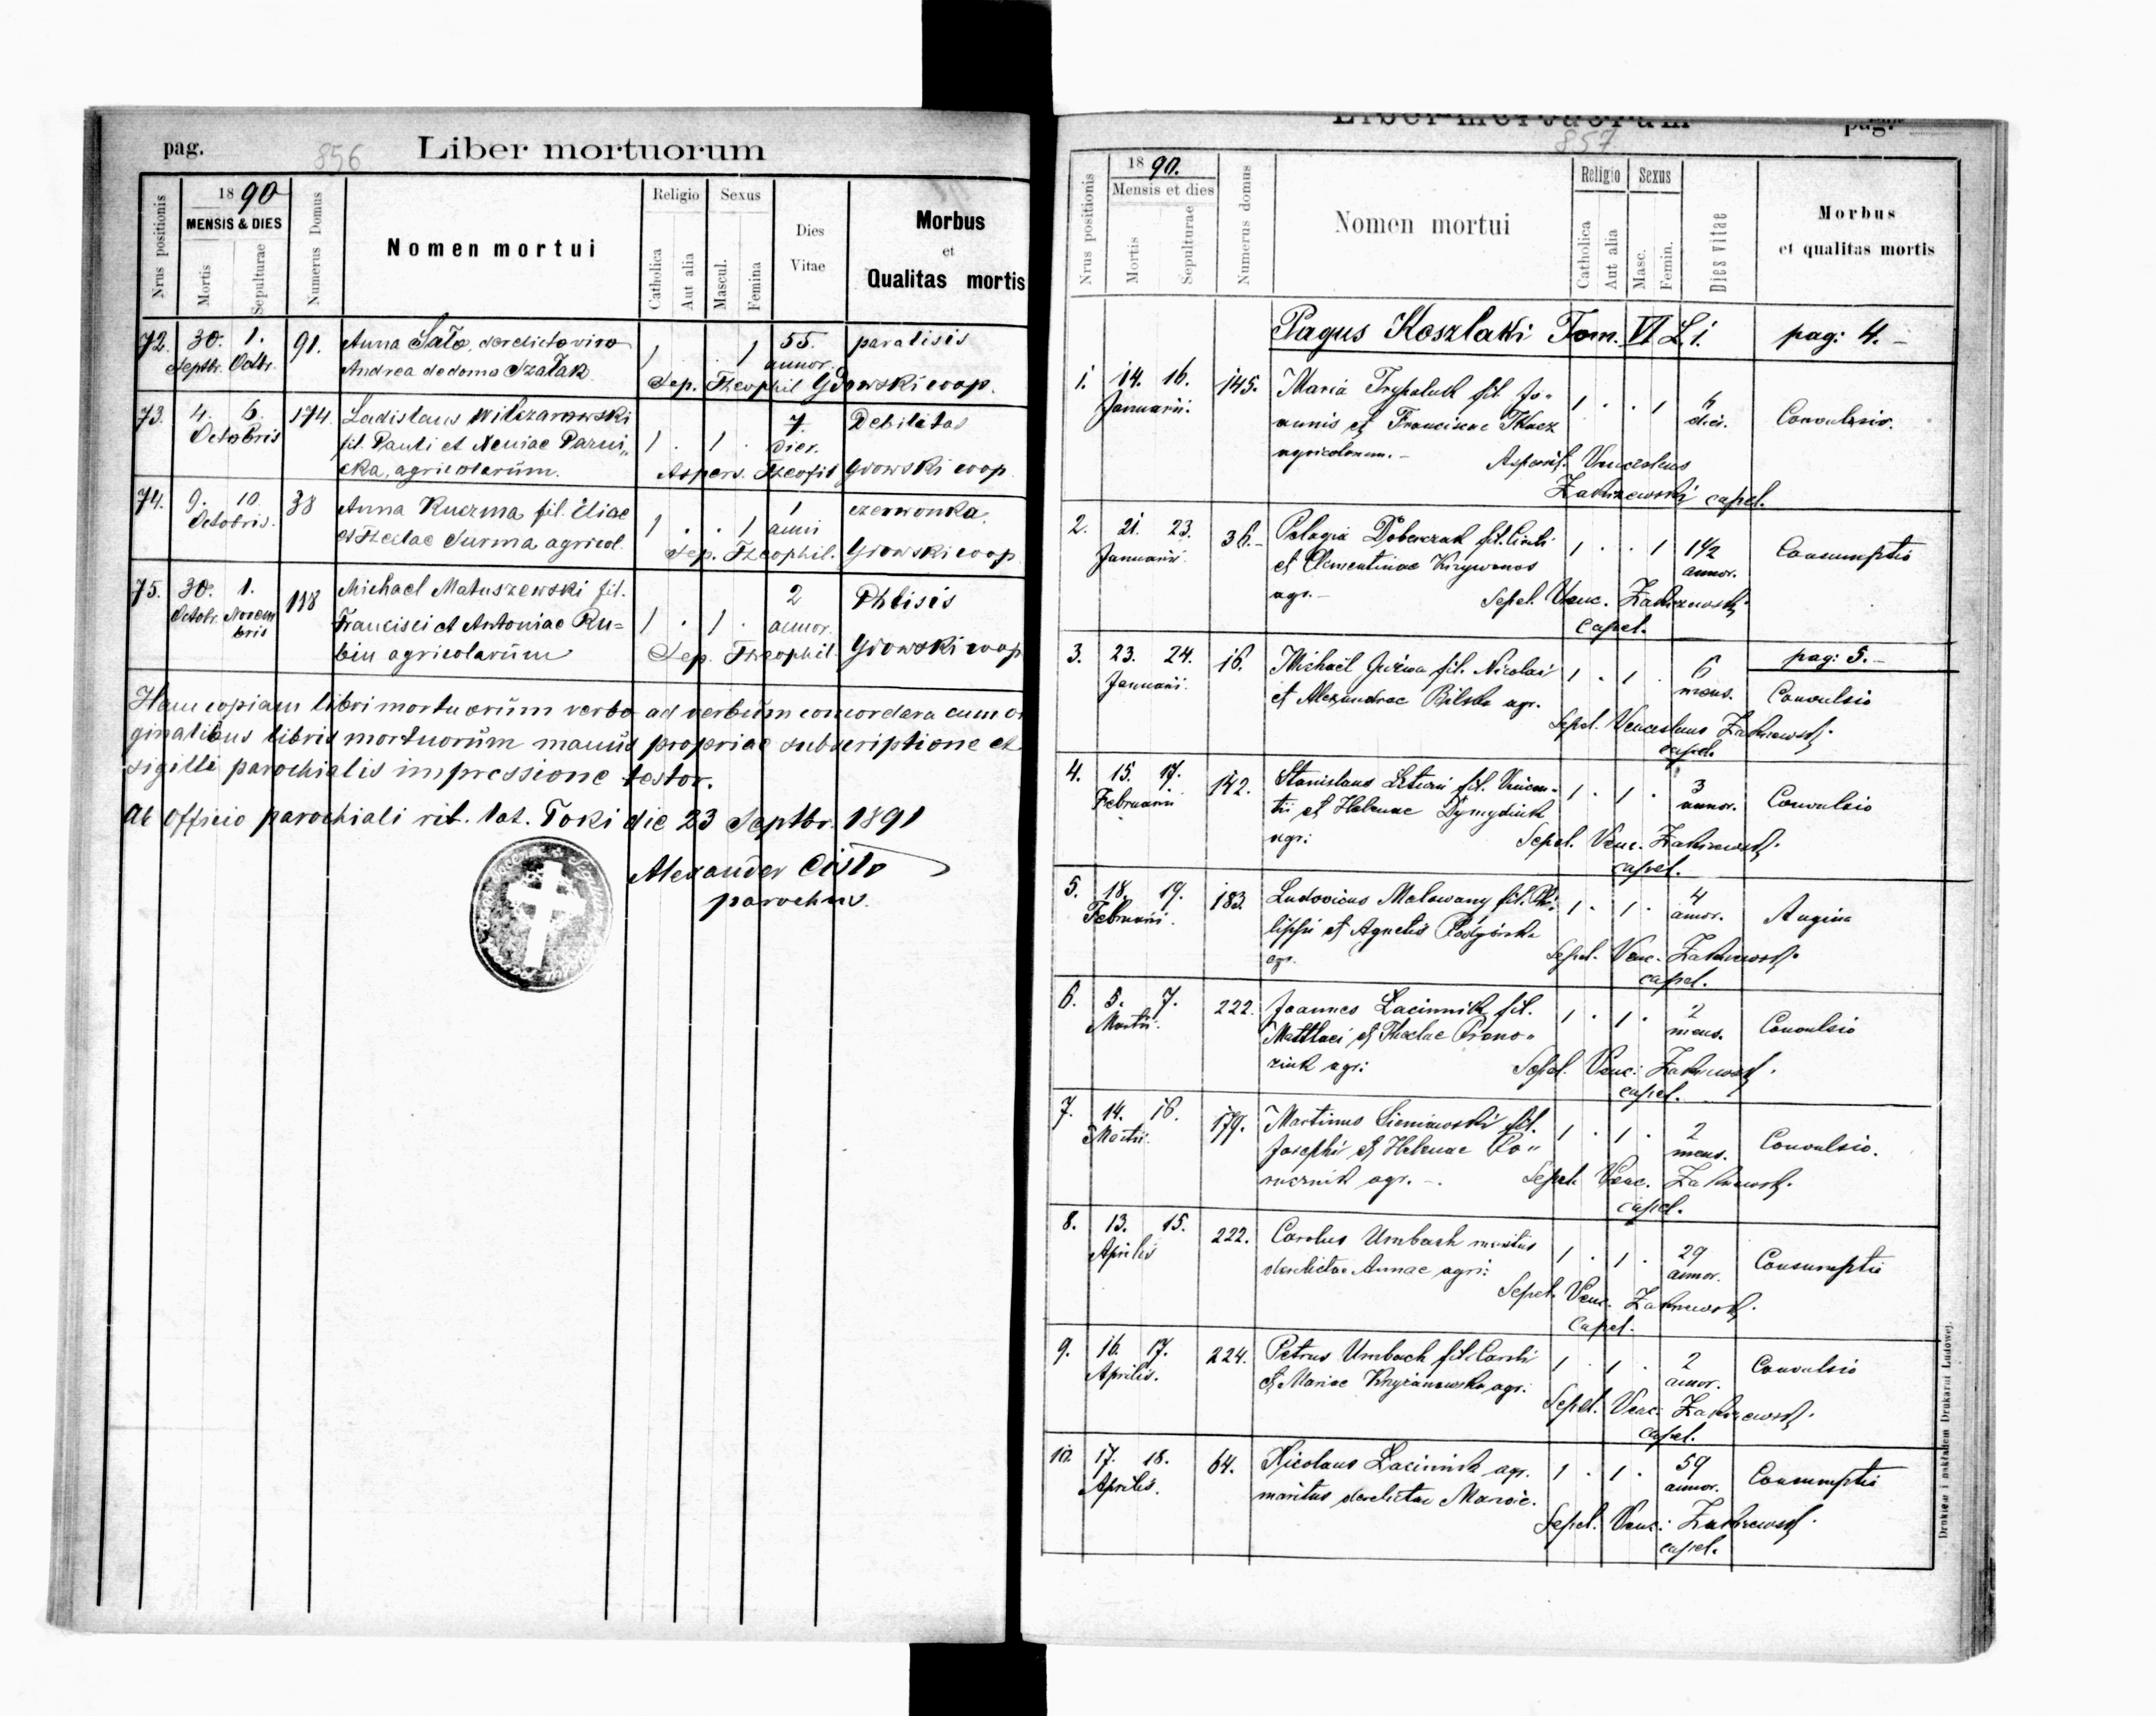 pag. 856 Liber mortuorum
Nrus positionis
1890
MENSIS & DIES
Mortis
Sepulturae
Numerus Domus
Nomen mortui
Religio
Catholica
Aut alia
Sexus
Mascul.
Femina
Dies
Vitae
Morbus
et
Qualitas mortis
72. 30. 1. 91. Anna Sato, derelicto viro 1 . . 1 55. paralisis
Septbr. Octbr. Andrea de domo Szatak annor.
Sep. Theophil Gdowski coop.
73. 4. 6. 174. Ladislaus 1 . 1 . 7. Debilitas
Octobris fil. Pauli et Xeniae Parni„ dier.
cka, agricolarum. Aspers. Theofil Gdowski coop.
74. 9. 10. 38 Anna Kuczma fil. Eliae 1 . . 1 1 czerwonka
Octobris. et Theclae Surma agricol. anni
Sep. Theophil. Gdowski coop
75. 30. 1. 118 Michael Matuszewski fil. 2 Phtisis
Octobr. Novem Francisci et Antoniae Ru= 1 . 1 . annor.
bris
bin agricolarum Sep. Theophil. Gdowski coop
Hanc copiam libri mortuorum verbo ad verbum concordara cum o
ginalibus libris mortuorum manus propriae subscriptione et
sigilli parochialis impressione testor.
Ab Officio parochiali rit. lat. Toki die 23 Septbr. 1891
Alexander Cisło
parochus.
Liber mortuorum pag.
857
Nrus positionis
1890.
Mensis et dies
Mortis
Sepulturae
Numerus domus
Nomen mortui
Religio
Catholica
Aut alia
Sexus
Masc.
Femin.
Dies vitae
Morbus
et qualitas mortis
Pagus Koszlaki Tom. VI L. i. pag: 4. –
1. 14. 16. 145. Maria fil. Jo„ 1 . . 1 6 Convulsio.
Januarii. annis et Franciscae Tkacz diei.
agricolarum. – Aspersit. Venceslaus
Zakrzewski capel.
2. 21. 23. 36. – Pelagia fil. Cirili 1 . . 1 1½ Consumptio
Januarii. et Clementinae annor.
agr. – Sepel. Venc. Zakrzewski
Capel.
pag: 5. –
3. 23. 24. 16. Michaël fil. Nicolai 1 . 1 . 6 Convulsio
Januarii. et Alexandrae Bilska agr. mens.
Sepel. Venceslaus Zakrzewski
capel.
4. 15. 17. 142. Stanislaus fil. Vincen- 1 . 1 . 3 Convulsio
Februarii tii et Helenae annor.
agr: Sepel. Venc. Zakrzewski.
capel.
5. 18. 19. 183. Ludovicus Malowany fil. Phi- 1 . 1 . 4 Angina
Februarii. lippi et Agnetis Podgórska annor.
agr. Sepel. Venc. Zakrzewski.
capel.
6. 5. 7. 222. Joannes Lacinnik fil. 1 . 1 . 2 Convulsio
Martii. Matthaei et Theclae mens.
agr: Sepel. Venc: Zakrzewski.
capel.
7. 14. 16. 179. Martinus Sieniawski fil. 1 . 1 . 2 Convulsio.
Martii. Josephi et Helenae mens.
agr. –. Sepel. Venc. Zakrzewski.
capel.
8. 13. 15. 222. Carolus Umbach maritus 1 . 1 . 29 Consumptio
Aprilis derelictae Annae agri: annor.
Sepel. Venc. Zakrzewski.
Capel.
9. 16. 17. 224. Petrus Umbach fil. Caroli 1 . 1 . 2 Convulsio
Aprilis. et Mariae Krzyżanowska agr: annor.
Sepel. Venc: Zakrzewski.
capel.
10. 17. 18. 64. Nicolaus Lacinnik agr. 1 . 1 . 59 Consumptio
Aprilis. maritus derelictae Mariae. annor.
Sepel. Venc: Zakrzewski.
capel.
Drukiem i nakładem Drukarni Ludowej.